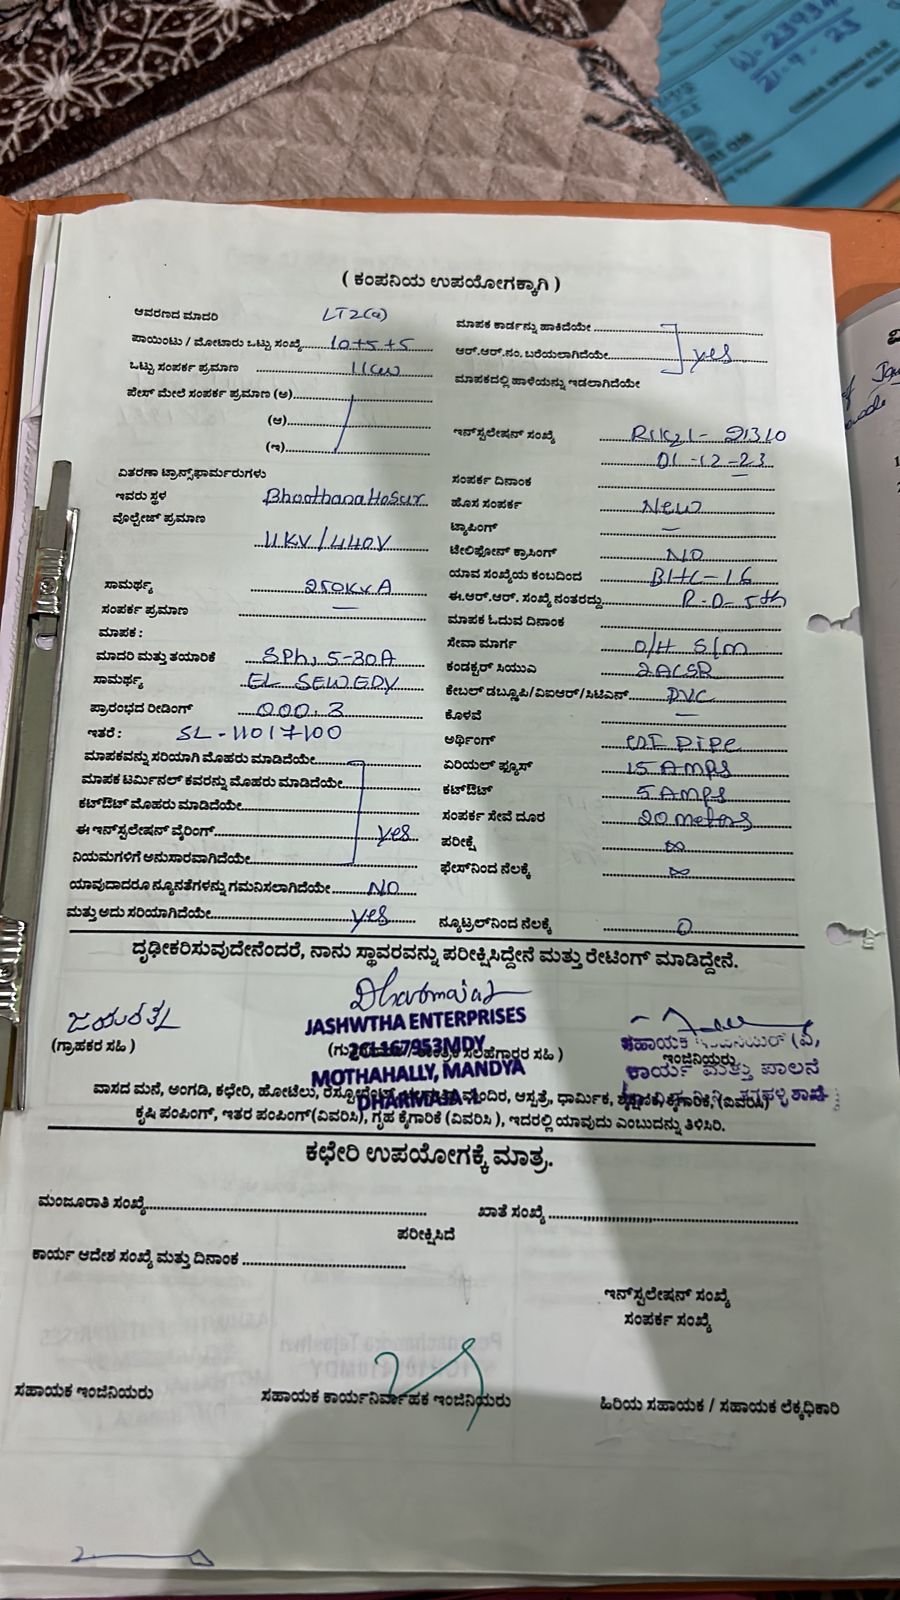 W-23934
21-9-23
( ಕಂಪನಿಯ ಉಪಯೋಗಕ್ಕಾಗಿ )
ಆವರಣದ ಮಾದರಿ LT2(a)
ಪಾಯಿಂಟು / ಮೋಟಾರು ಒಟ್ಟು ಸಂಖ್ಯೆ 10+5+5
ಒಟ್ಟು ಸಂಪರ್ಕ ಪ್ರಮಾಣ 1KW
ಪೇಸ್ ಮೇಲೆ ಸಂಪರ್ಕ ಪ್ರಮಾಣ (ಅ)
(ಆ)
(ಇ)
ವಿತರಣಾ ಟ್ರಾನ್ಸ್‌ಫಾರ್ಮರುಗಳು
ಇವರು ಸ್ಥಳ Bhoothana Hosur
ವೋಲ್ಟೇಜ್ ಪ್ರಮಾಣ
11KV/440V
ಸಾಮರ್ಥ್ಯ 250KVA
ಸಂಪರ್ಕ ಪ್ರಮಾಣ —
ಮಾಪಕ :
ಮಾದರಿ ಮತ್ತು ತಯಾರಿಕೆ SPh, 5-30A
ಸಾಮರ್ಥ್ಯ EL SEWEDY
ಪ್ರಾರಂಭದ ರೀಡಿಂಗ್ 000.3
ಇತರೆ : SL-11017100
ಮಾಪಕವನ್ನು ಸರಿಯಾಗಿ ಮೊಹರು ಮಾಡಿದೆಯೇ
ಮಾಪಕ ಟರ್ಮಿನಲ್ ಕವರನ್ನು ಮೊಹರು ಮಾಡಿದೆಯೇ
ಕಟ್‌ಔಟ್ ಮೊಹರು ಮಾಡಿದೆಯೇ
ಈ ಇನ್‌ಸ್ಟಲೇಷನ್ ವೈರಿಂಗ್ yes
ನಿಯಮಗಳಿಗೆ ಅನುಸಾರವಾಗಿದೆಯೇ
ಯಾವುದಾದರೂ ನ್ಯೂನತೆಗಳನ್ನು ಗಮನಿಸಲಾಗಿದೆಯೇ NO
ಮತ್ತು ಅದು ಸರಿಯಾಗಿದೆಯೇ yes
ಮಾಪಕ ಕಾರ್ಡನ್ನು ಹಾಕಿದೆಯೇ
ಆರ್.ಆರ್.ನಂ. ಬರೆಯಲಾಗಿದೆಯೇ yes
ಮಾಪಕದಲ್ಲಿ ಹಾಳೆಯನ್ನು ಇಡಲಾಗಿದೆಯೇ
ಇನ್‌ಸ್ಟಲೇಷನ್ ಸಂಖ್ಯೆ
01-12-23
ಸಂಪರ್ಕ ದಿನಾಂಕ —
ಹೊಸ ಸಂಪರ್ಕ New
ಟ್ಯಾಪಿಂಗ್ —
ಟೇಲಿಫೋನ್ ಕ್ರಾಸಿಂಗ್ NO
ಯಾವ ಸಂಖ್ಯೆಯ ಕಂಬದಿಂದ BHC-16
ಈ.ಆರ್.ಆರ್. ಸಂಖ್ಯೆ ನಂತರದ್ದು R.D- 5th
ಮಾಪಕ ಓದುವ ದಿನಾಂಕ
ಸೇವಾ ಮಾರ್ಗ O/H S/m
ಕಂಡಕ್ಟರ್ ಸಿಯುವಿ 2ACSR
ಕೇಬಲ್ ಡಬ್ಲೂಪಿ/ವಿಐಆರ್/ಸಿಟಿಎಸ್ PVC
ಕೊಳವೆ —
ಅರ್ಥಿಂಗ್ GI Pipe
ಏರಿಯಲ್ ಫ್ಯೂಸ್ 15 Amps
ಕಟ್‌ಔಟ್ 5 Amps
ಸಂಪರ್ಕ ಸೇವೆ ದೂರ 20 meters
ಪರೀಕ್ಷೆ ∞
ಫೇಸ್‌ನಿಂದ ನೆಲಕ್ಕೆ ∞
ನ್ಯೂಟ್ರಲ್‌ನಿಂದ ನೆಲಕ್ಕೆ 0
ದೃಢೀಕರಿಸುವುದೇನೆಂದರೆ, ನಾನು ಸ್ಥಾವರವನ್ನು ಪರೀಕ್ಷಿಸಿದ್ದೇನೆ ಮತ್ತು ರೇಟಿಂಗ್ ಮಾಡಿದ್ದೇನೆ.
Dharmaja L
JASHWTHA ENTERPRISES
(ಗ್ರಾಹಕರ ಸಹಿ )
2CL167953MDY
ಸಲಹೆಗಾರರ ಸಹಿ )
ಸಹಾಯಕ ಇಂಜಿನಿಯರ್ (ವಿ,
ಇಂಜಿನಿಯರು
ಕಾರ್ಯ ಮತ್ತು ಪಾಲನೆ
MOTHAHALLY, MANDYA
DHARMAJA L
ವಾಸದ ಮನೆ, ಅಂಗಡಿ, ಕಛೇರಿ, ಹೋಟೆಲು, ಮಂದಿರ, ಆಸ್ಪತ್ರೆ, ಧಾರ್ಮಿಕ, ಕೈಗಾರಿಕೆ, (ವಿವರಿಸಿ)
ಕೃಷಿ ಪಂಪಿಂಗ್, ಇತರ ಪಂಪಿಂಗ್(ವಿವರಿಸಿ), ಗೃಹ ಕೈಗಾರಿಕೆ (ವಿವರಿಸಿ ), ಇದರಲ್ಲಿ ಯಾವುದು ಎಂಬುದನ್ನು ತಿಳಿಸಿರಿ.
ಕಛೇರಿ ಉಪಯೋಗಕ್ಕೆ ಮಾತ್ರ.
ಮಂಜೂರಾತಿ ಸಂಖ್ಯೆ
ಖಾತೆ ಸಂಖ್ಯೆ
ಪರೀಕ್ಷಿಸಿದೆ
ಕಾರ್ಯ ಆದೇಶ ಸಂಖ್ಯೆ ಮತ್ತು ದಿನಾಂಕ
ಇನ್‌ಸ್ಟಲೇಷನ್ ಸಂಖ್ಯೆ
ಸಂಪರ್ಕ ಸಂಖ್ಯೆ
ಸಹಾಯಕ ಇಂಜಿನಿಯರು
ಸಹಾಯಕ ಕಾರ್ಯನಿರ್ವಾಹಕ ಇಂಜಿನಿಯರು
ಹಿರಿಯ ಸಹಾಯಕ / ಸಹಾಯಕ ಲೆಕ್ಕಧಿಕಾರಿ